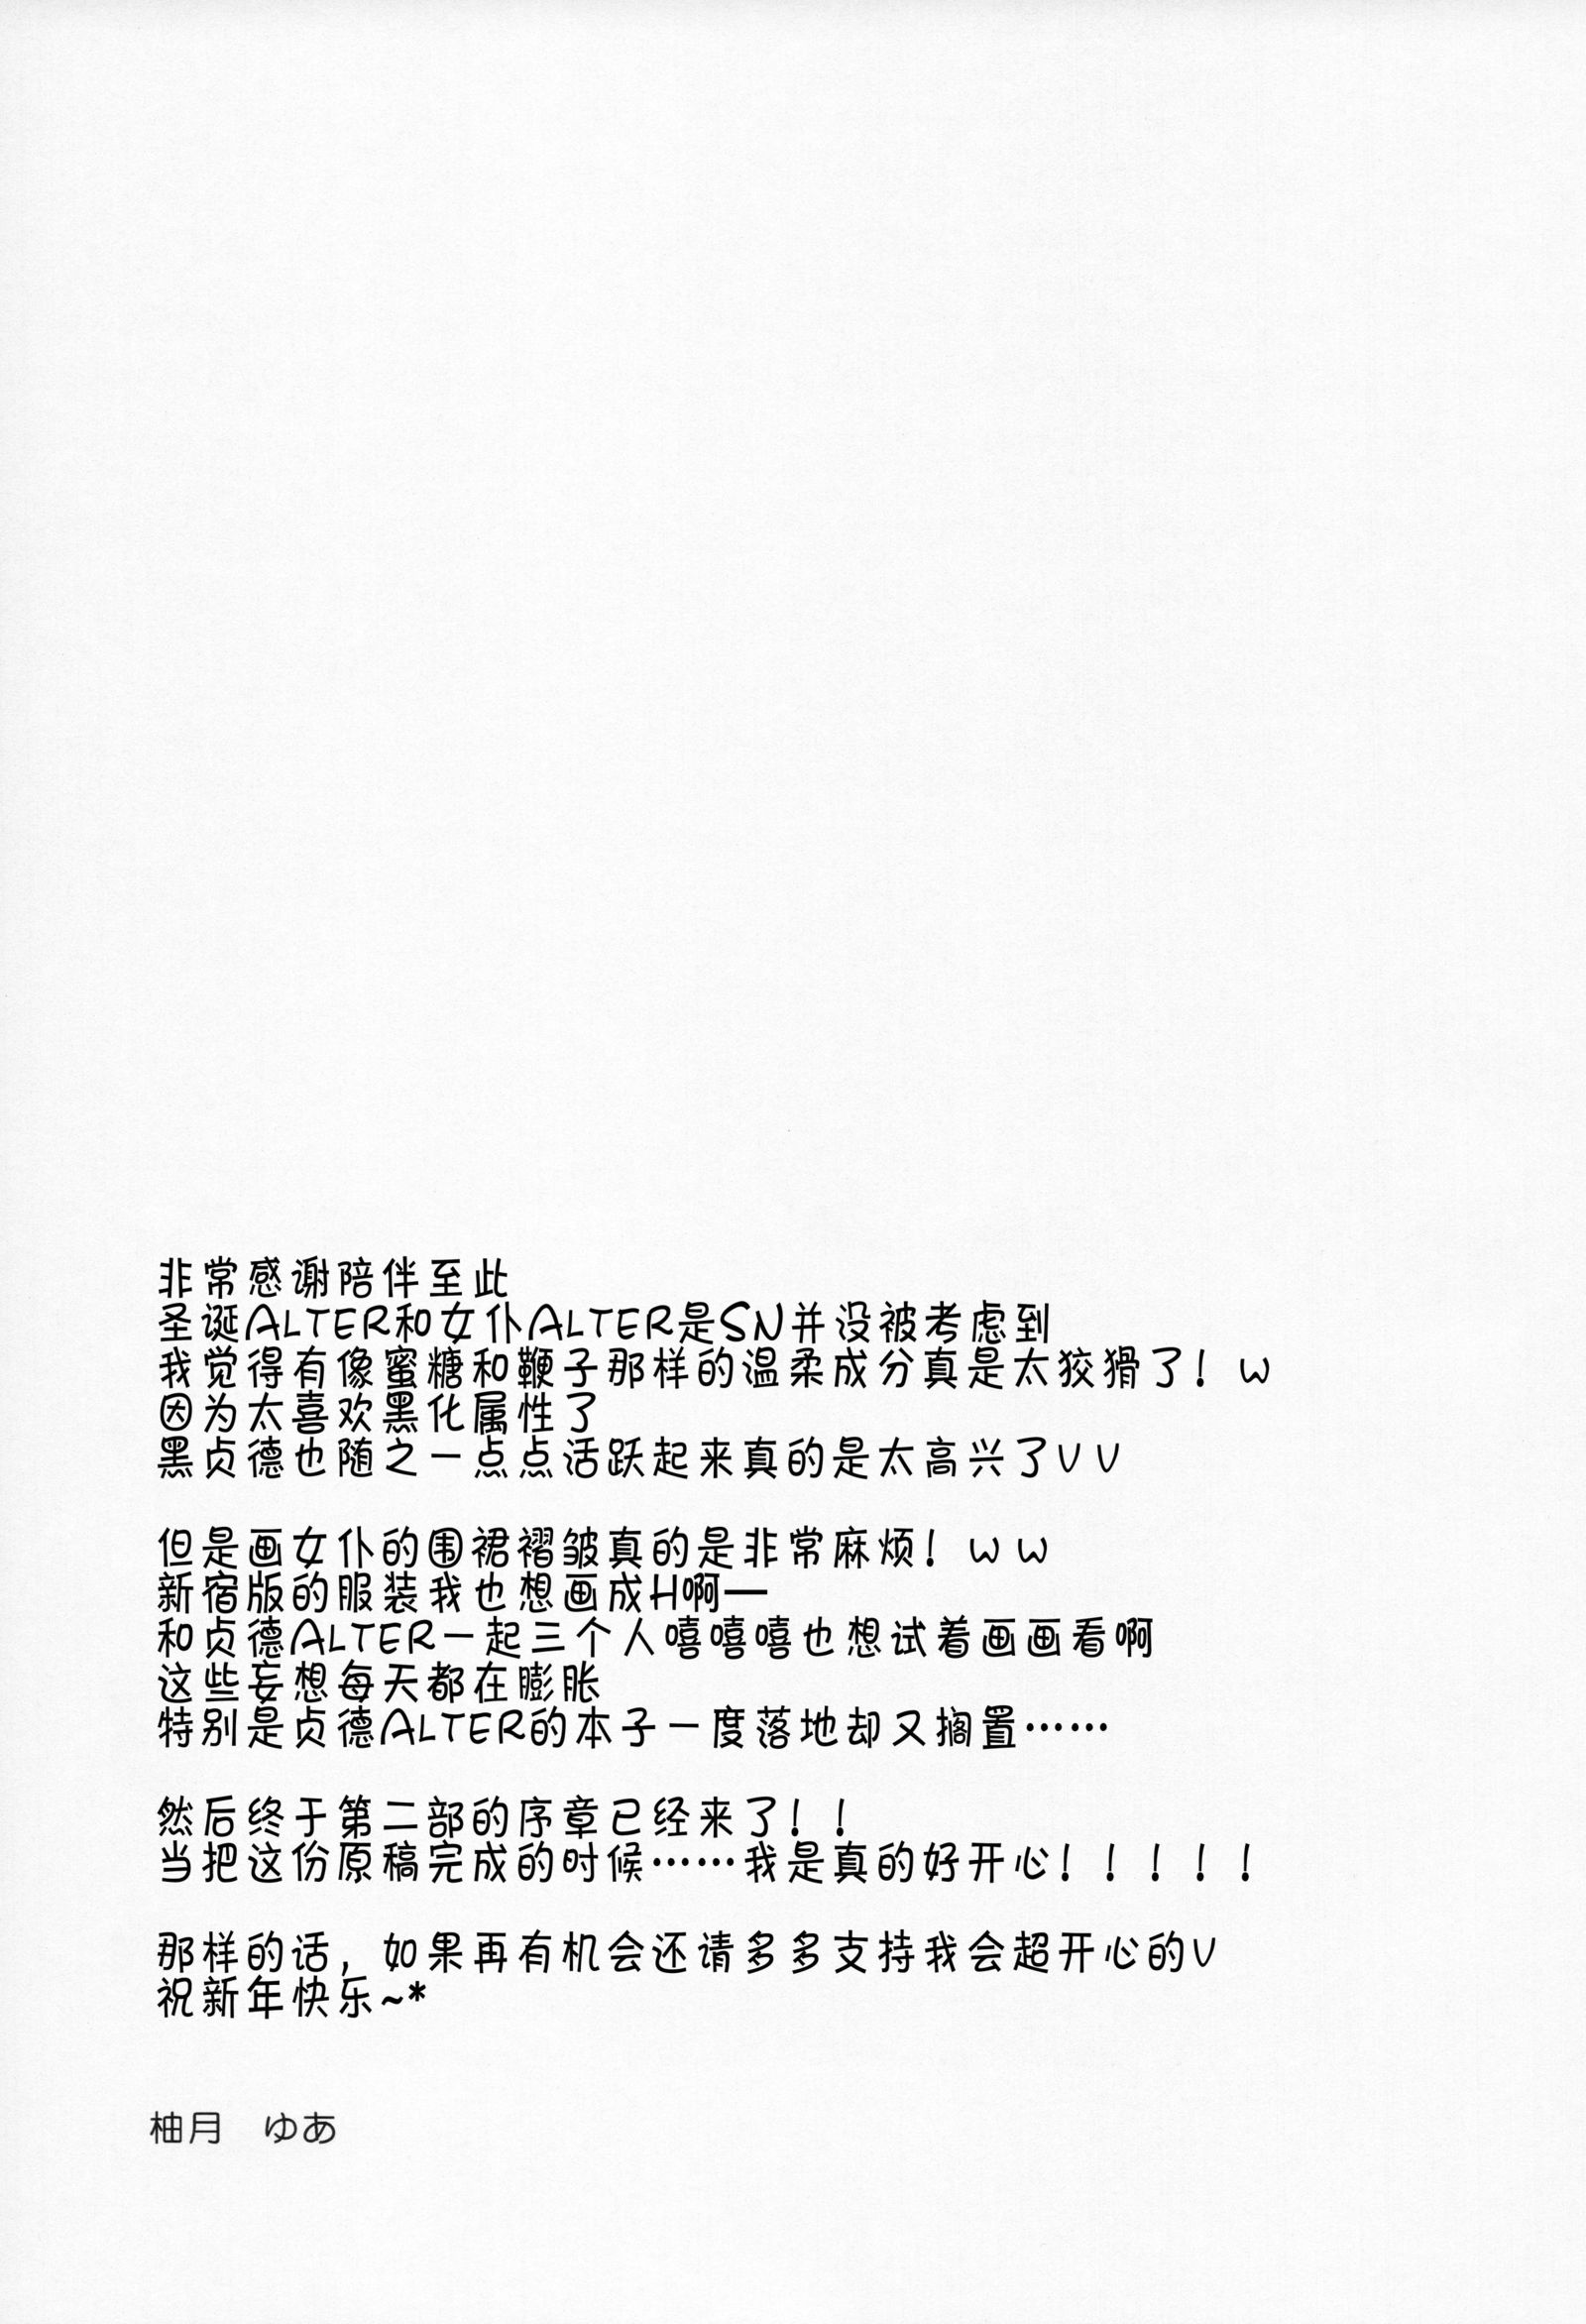 非常感谢陪伴至此
圣诞ALTER和女仆ALTER是SN并没被考虑到
我觉得有像蜜糖和鞭子那样的温柔成分真是太狡猾了！w
因为太喜欢黑化属性了
黑贞德也随之一点点活跃起来真的是太高兴了VV
但是画女仆的围裙褶皱真的是非常麻烦！ww
新宿版的服装我也想画成H啊——
和贞德ALTER一起三个人嘻嘻嘻也想试着画画看啊
这些妄想每天都在膨胀
特别是贞德ALTER的本子一度落地却又搁置……
然后终于第二部的序章已经来了！！
当把这份原稿完成的时候……我是真的好开心！！！！！
那样的话，如果再有机会还请多多支持我会超开心的V
祝新年快乐~*
柚月　ゆあ